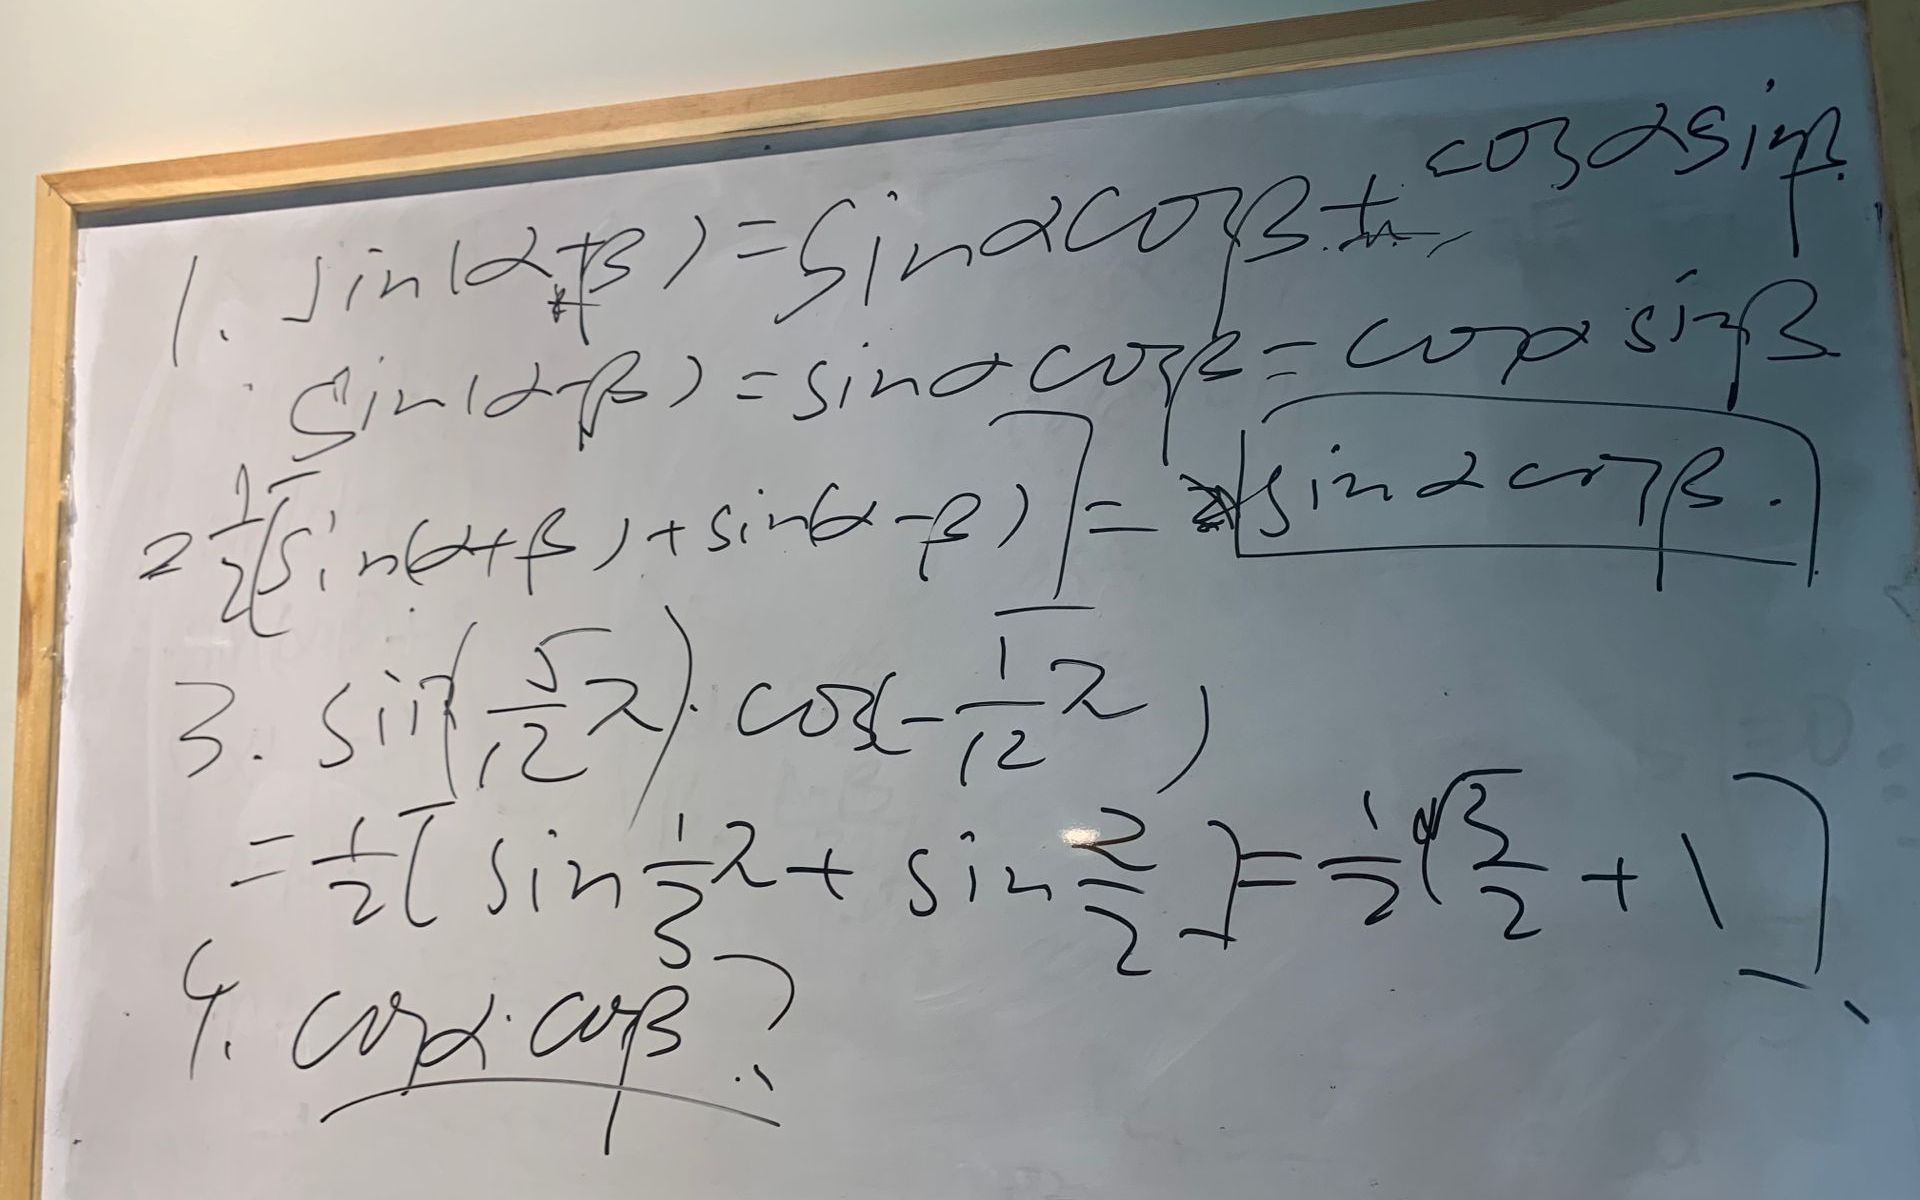 1. sin(α+β)=sinαcosβ+cosαsinβ
sin(α-β)=sinαcosβ=cosαsinβ
2 1/2[sin(α+β)+sin(α-β)]=sinαcosβ.
3. sin(5/12π)·cos(-1/12π)
=1/2[sin1/3π+sinπ/2]=1/2[√3/2+1]
4. cosα·cosβ?